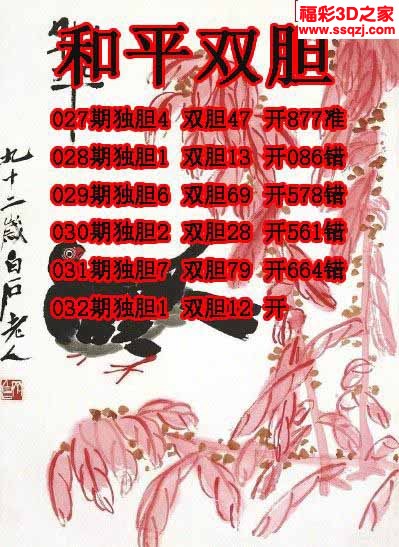 福彩3D之家
www.ssqzj.com
和平双胆
027期独胆4 双胆47 开877准
028期独胆1 双胆13 开086错
029期独胆6 双胆69 开578错
030期独胆2 双胆28 开561错
031期独胆7 双胆79 开664错
032期独胆1 双胆12 开
九十二岁白石老人